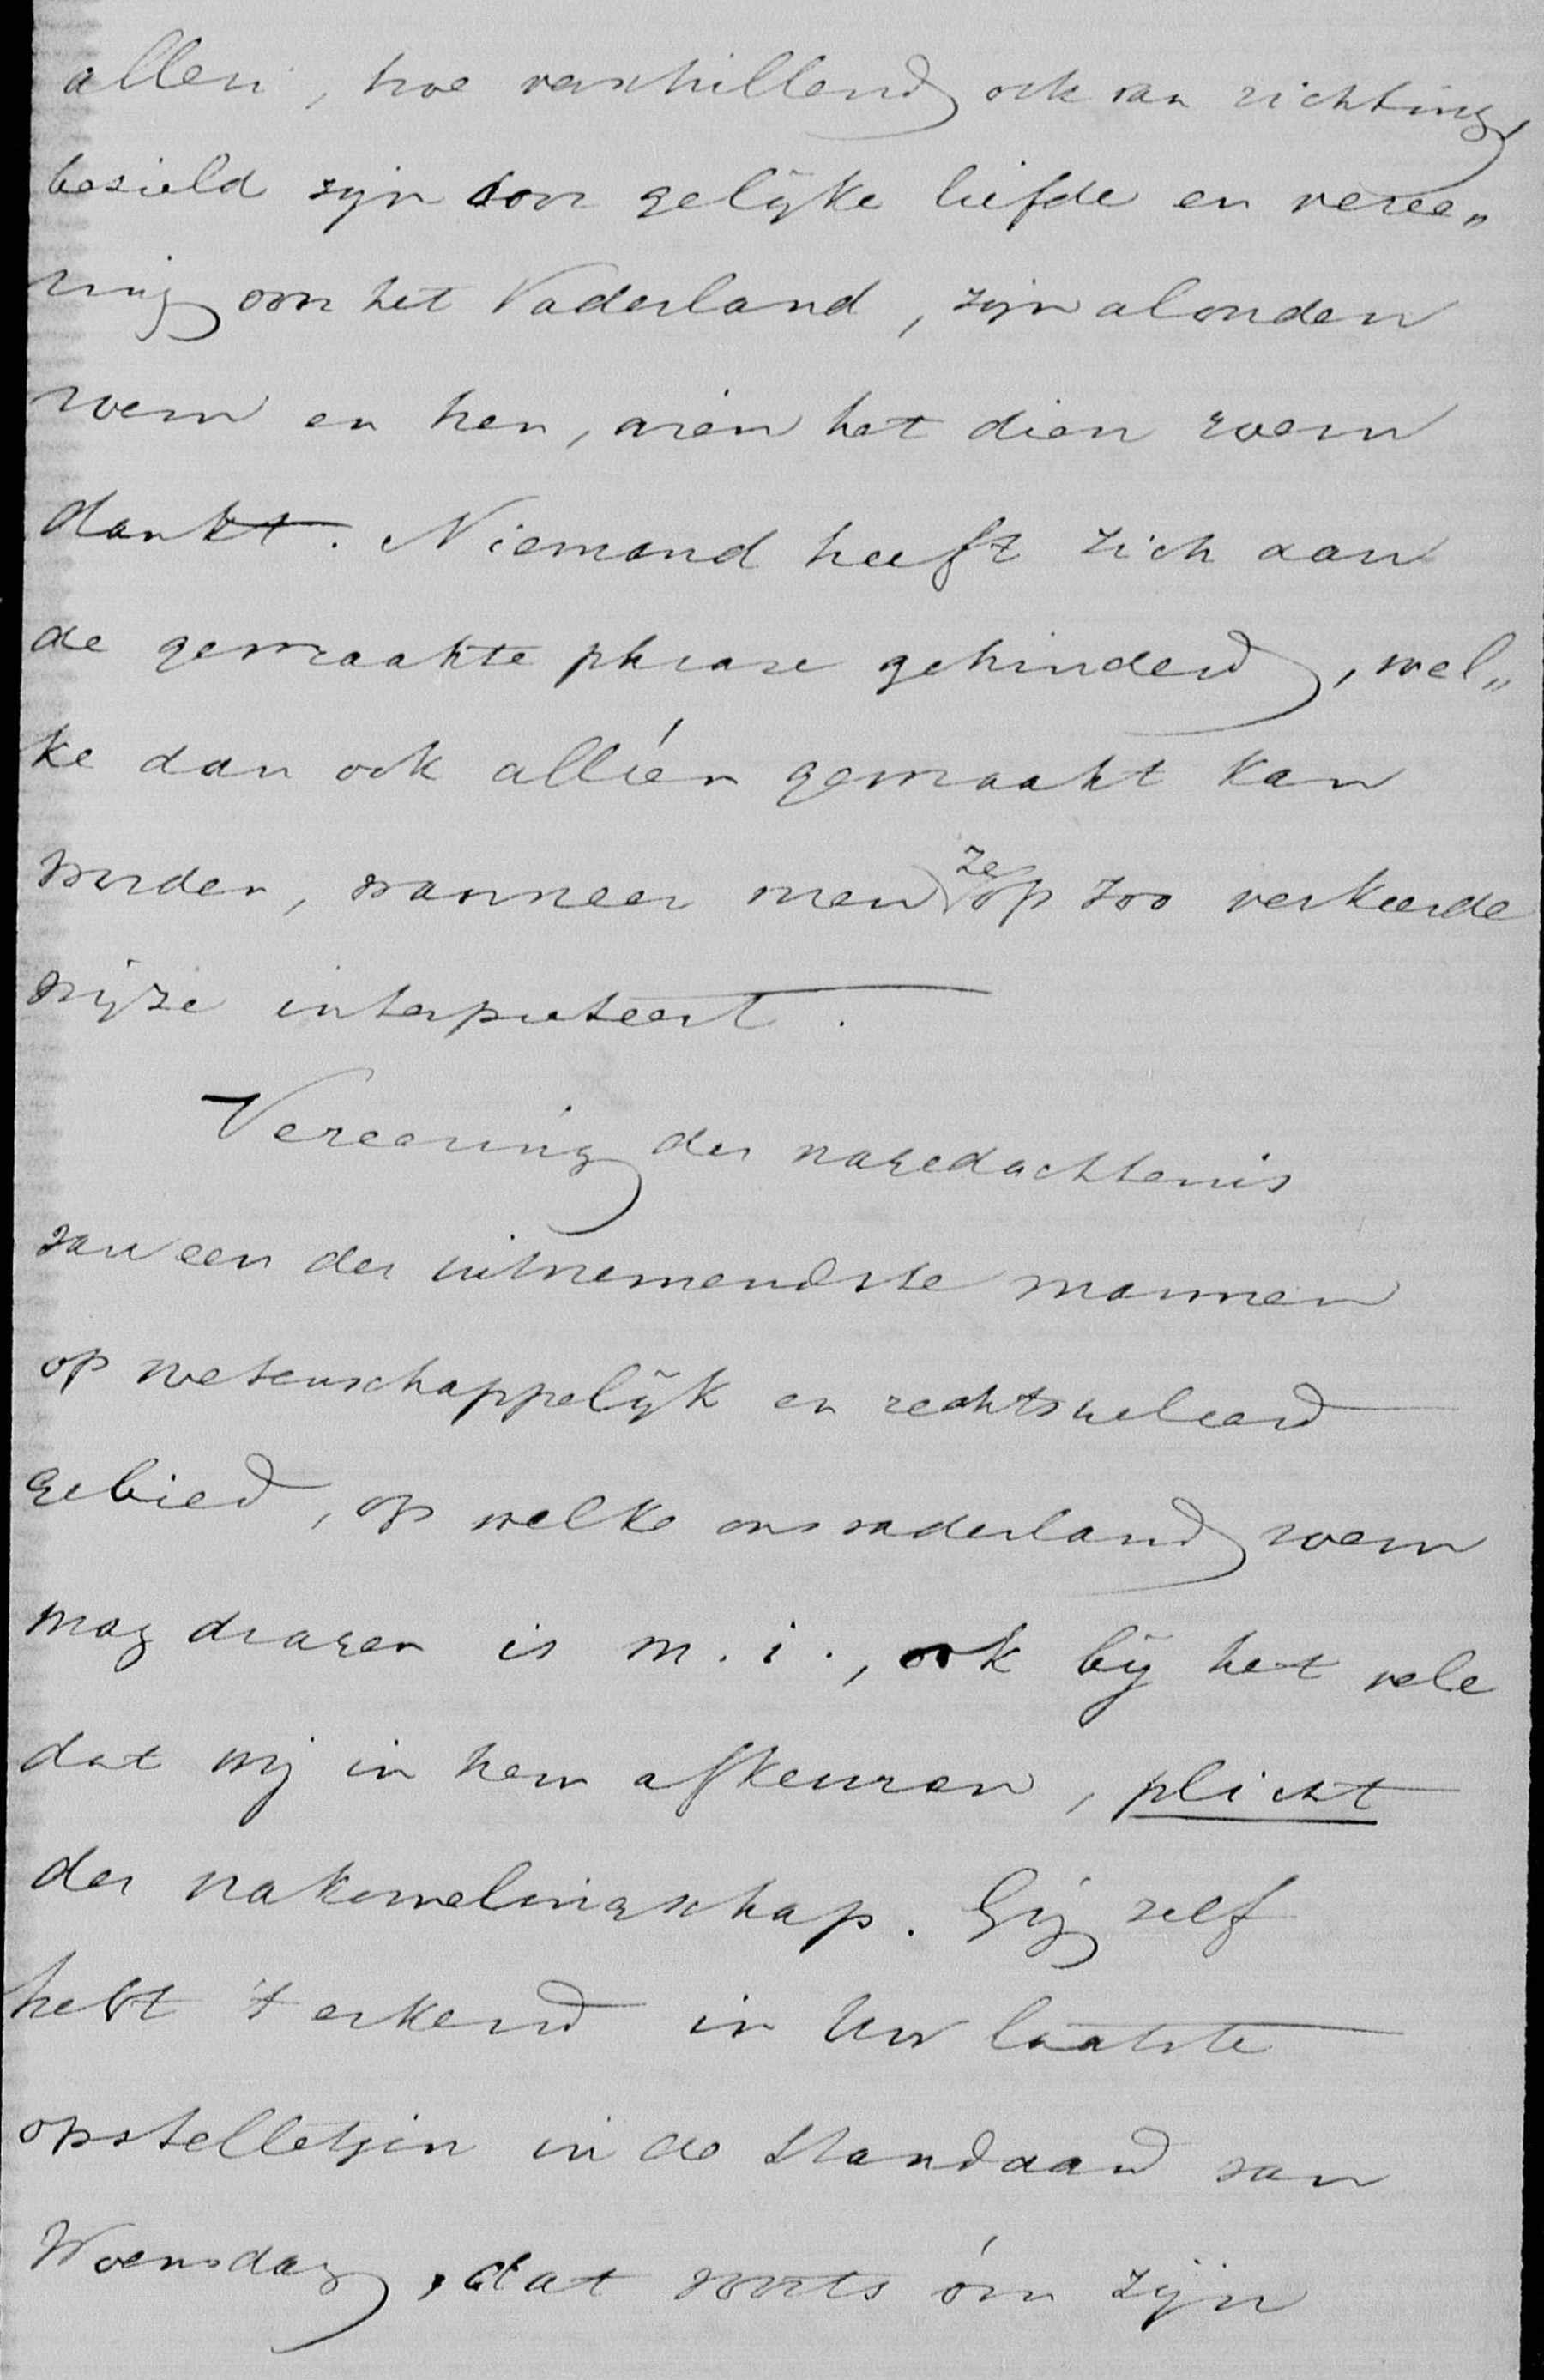 allen, hoe verschillend ook van richting,
bezield zijn door gelijke liefde en veree„
ring voor het Vaderland, zijn alouden
roem en hen, wien het dien roem
dankt. Niemand heeft zich aan
de gemaakte phrase gehinderd, wel„
ke dan ook alléén gemaakt kan
worden, wanneer men ze op zoo verkeerde
wijze interpreteert.
Vereering der nagedachtenis
van een der uitnemendste mannen
op wetenschappelijk en rechtsgeleerd
gebied, op welke ons vaderland roem
mag dragen is m. i., ook bij het vele
dat wij in hem afkeuren, plicht
der nakomelingschap. Gij zelf
hebt 't erkend in Uw laatste
opstelletjen in de Standaard van
Woensdag, dat voorts óm zijn